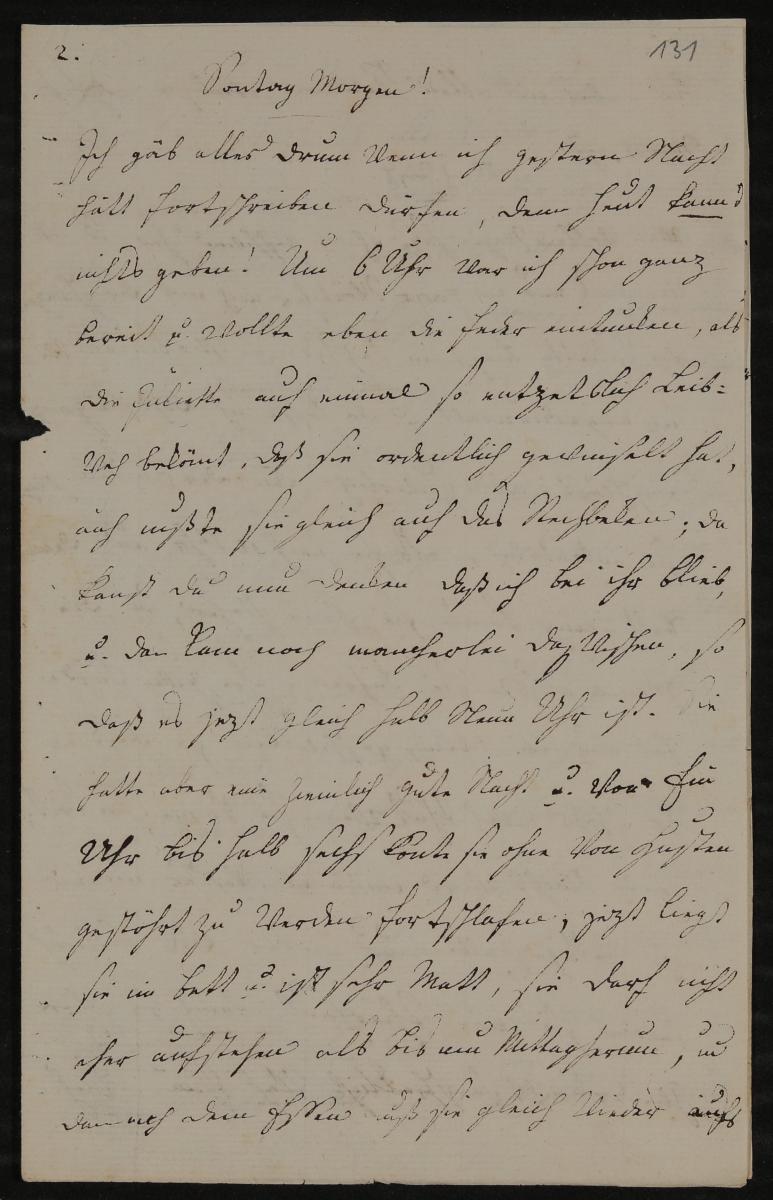 2.
131
Sontag Morgen!
Ich gäb alles drum wenn ich gestern Nacht
hätt fortschreiben dürfen, denn heut kann's
nichts geben! Um 6 Uhr war ich schon ganz
bereit u. wollte eben die Feder eintunken, als
die Juliette auf einmal so entzetzlich Leib=
weh bekömt, daß sie ordentlich gewinselt hat,
auch mußte sie gleich auf das Nachbeken; da
kanst du nun denken daß ich bei ihr blieb,
u. dan kam noch mancherlei dazwischen, so
daß es jezt gleich halb Neun Uhr ist. Sie
hatte aber eine ziemlich gute Nacht u. von Ein
Uhr bis halb sechs konte sie ohne von Husten
gestöhrt zu werden fortschlafen, jezt liegt
sie im Bett u. ist sehr Matt, sie darf nicht
eher aufstehen als bis um Mittagherum, und
dan nach dem Essen muß sie gleich wieder aufs